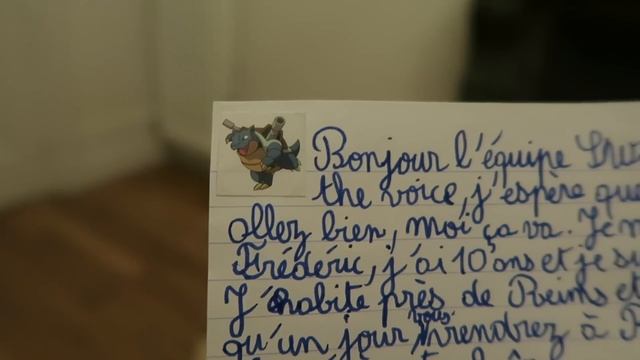 Bonjour l'équipe
the voice, j'espère que
allez bien, moi ça va. Je
Frédéric, j'ai 10 ans et je
J'habite près de Reims et
vous
qu'un jour prendrez à